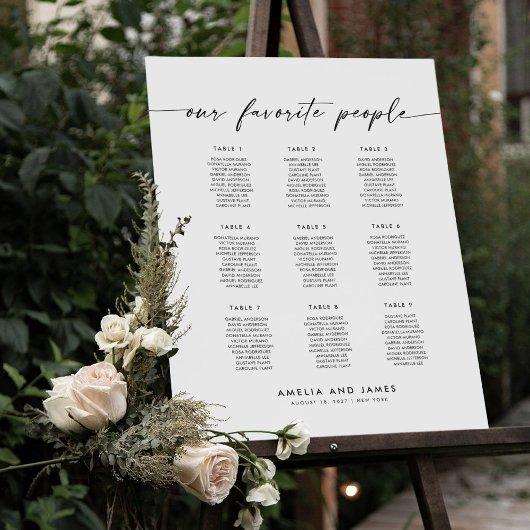 our favorite people
TABLE 1
ROSA RODRIGUEZ
DONATELLA MURANO
VICTOR MURANO
GABRIEL ANDERSON
DAVID ANDERSON
MIGUEL RODRIGUEZ
MICHELLE JEFFERSON
ANNABELLE LEE
GUSTAVE PLANT
CAROLINE PLANT
TABLE 2
GABRIEL ANDERSON
ANNABELLE LEE
GUSTAVE PLANT
CAROLINE PLANT
DAVID ANDERSON
MIGUEL RODRIGUEZ
ROSA RODRIGUEZ
DONATELLA MURANO
VICTOR MURANO
MICHELLE JEFFERSON
TABLE 3
ROSA RODRIGUEZ
DONATELLA MURANO
VICTOR MURANO
GABRIEL ANDERSON
DAVID ANDERSON
MIGUEL RODRIGUEZ
ANNABELLE LEE
GUSTAVE PLANT
CAROLINE PLANT
MICHELLE JEFFERSON
TABLE 4
DONATELLA MURANO
VICTOR MURANO
MICHELLE JEFFERSON
ROSA RODRIGUEZ
GUSTAVE PLANT
CAROLINE PLANT
GABRIEL ANDERSON
DAVID ANDERSON
MIGUEL RODRIGUEZ
ANNABELLE LEE
TABLE 5
GABRIEL ANDERSON
DAVID ANDERSON
ANNABELLE LEE
GUSTAVE PLANT
CAROLINE PLANT
DONATELLA MURANO
VICTOR MURANO
MICHELLE JEFFERSON
MIGUEL RODRIGUEZ
ROSA RODRIGUEZ
TABLE 6
ROSA RODRIGUEZ
DONATELLA MURANO
VICTOR MURANO
MICHELLE JEFFERSON
GABRIEL ANDERSON
DAVID ANDERSON
MIGUEL RODRIGUEZ
ANNABELLE LEE
GUSTAVE PLANT
CAROLINE PLANT
TABLE 7
GABRIEL ANDERSON
DAVID ANDERSON
MIGUEL RODRIGUEZ
DONATELLA MURANO
VICTOR MURANO
MICHELLE JEFFERSON
ROSA RODRIGUEZ
ANNABELLE LEE
GUSTAVE PLANT
CAROLINE PLANT
TABLE 8
ROSA RODRIGUEZ
GABRIEL ANDERSON
DAVID ANDERSON
MIGUEL RODRIGUEZ
DONATELLA MURANO
VICTOR MURANO
MICHELLE JEFFERSON
ANNABELLE LEE
GUSTAVE PLANT
CAROLINE PLANT
TABLE 9
GUSTAVE PLANT
CAROLINE PLANT
GABRIEL ANDERSON
DAVID ANDERSON
ROSA RODRIGUEZ
DONATELLA MURANO
VICTOR MURANO
MICHELLE JEFFERSON
MIGUEL RODRIGUEZ
ANNABELLE LEE
AMELIA AND JAMES
AUGUST 18, 2027 | NEW YORK